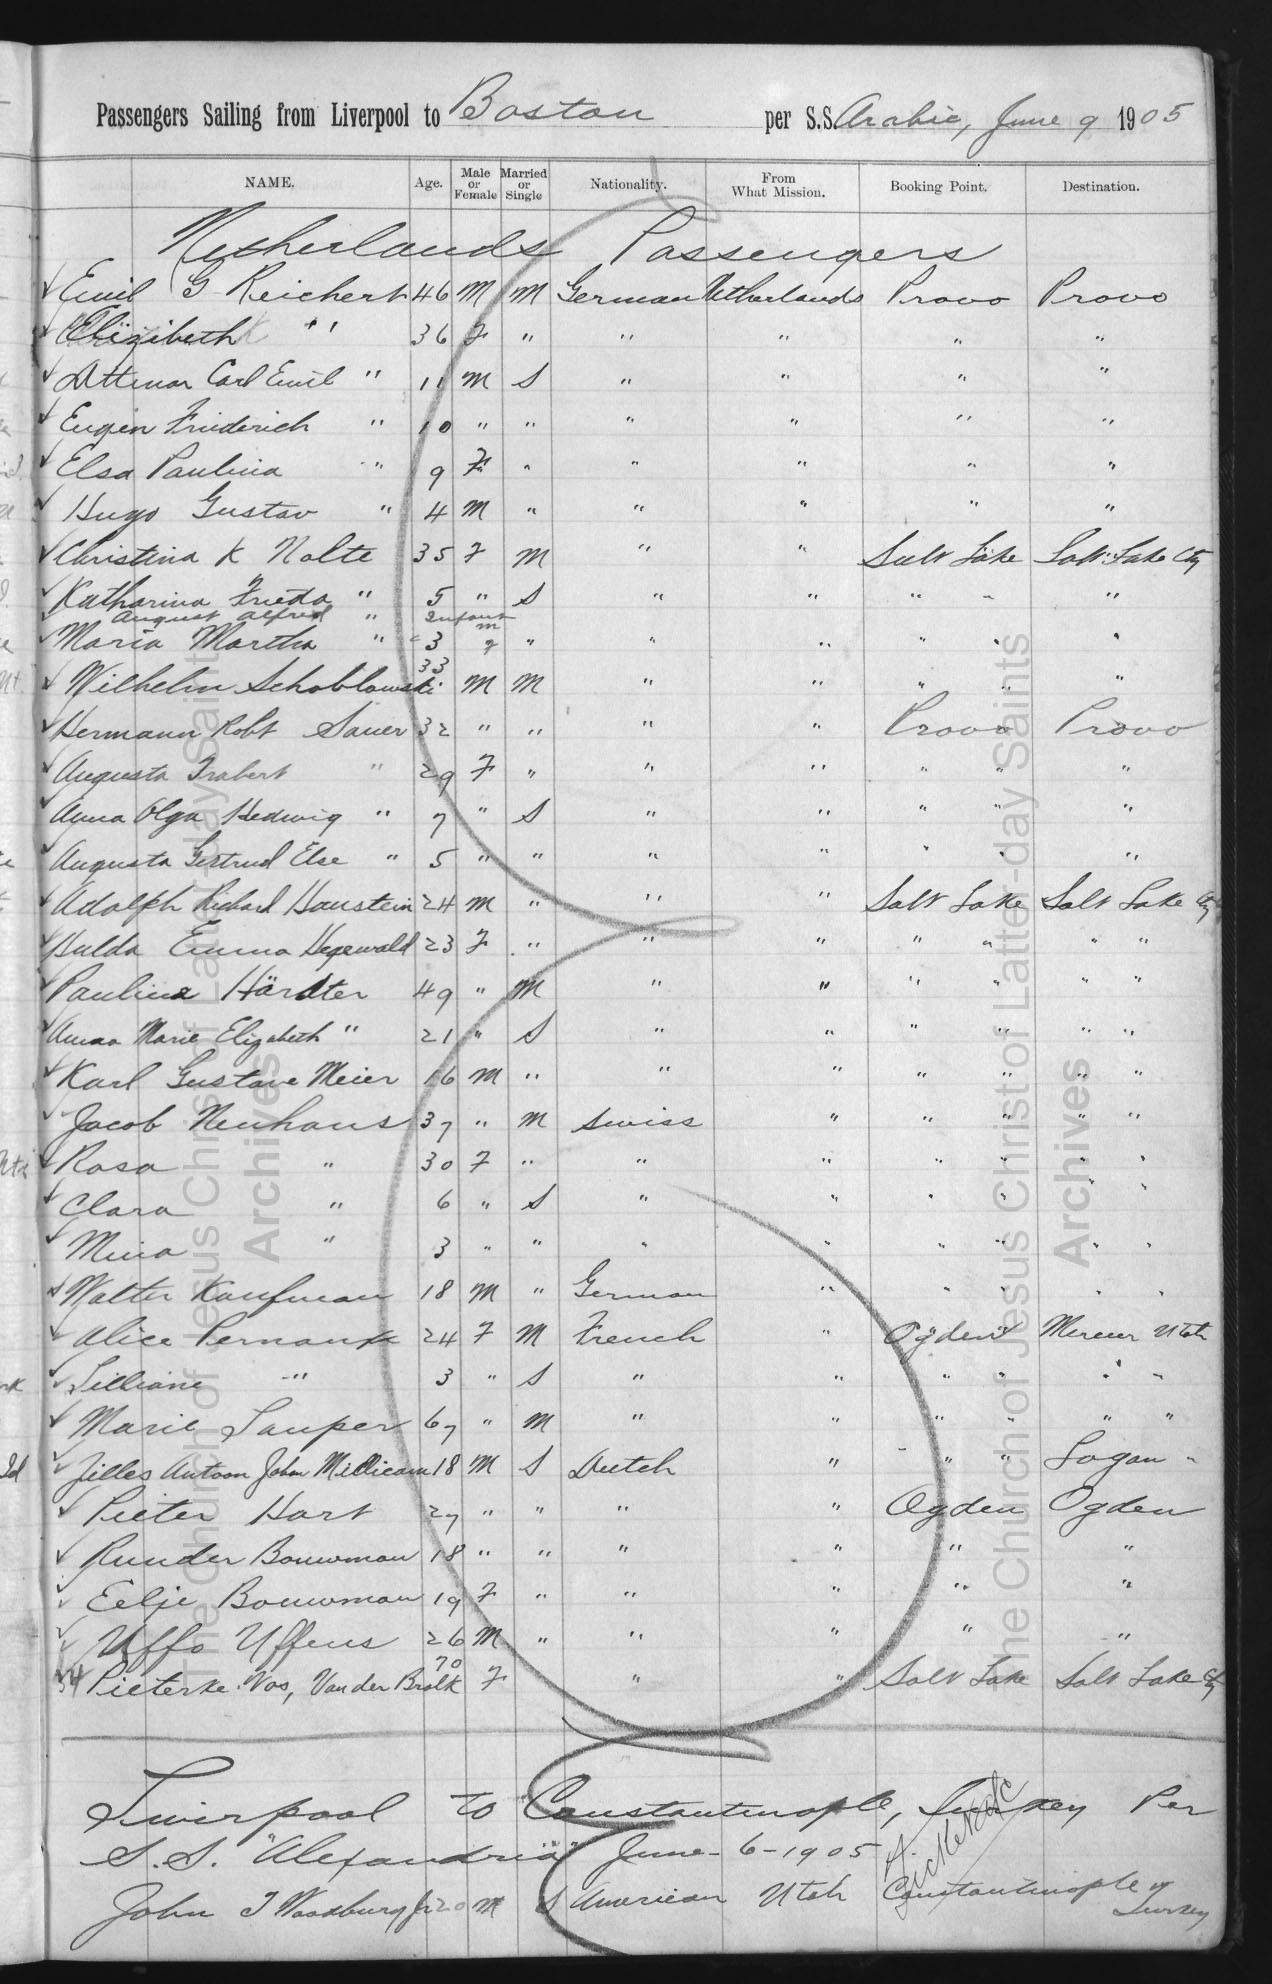 Passengers Sailing from Liverpool to Boston per S.S. Arabic, June 9 1905
NAME. Age. Male or Female Married or Single Nationality. From What Mission. Booking Point. Destination.
Netherlands Passengers
✓ Emil G Reichert 46 M M German Netherlands Provo Provo
✓ Elizibeth " 36 F " " " " "
✓ Ottmar Carl Emil " 11 M S " " " "
✓ Eugen Friederich " 10 " " " " " "
✓ Elsa Paulina " 9 F " " " " "
✓ Hugo Gustav " 4 M " " " " "
✓ Christina K Nolte 35 F M " " Salt Lake Salt Lake Cty
✓ Katharina Frieda " 5 " S " " " " "
August Alfred " Infant m
✓ Maria Martha " 3 F " " " " " "
✓ Wilhelm Schoblowski 33 M M " " " " "
✓ Hermann Robt Sauer 32 " " " " Provo Provo
✓ Augusta Trabert " 29 F " " " " " "
✓ Anna Olga Hedwig " 7 " S " " " " "
✓ Augusta Gertrud Else " 5 " " " " " " "
✓ Adolph Richard Haustein 24 M " " " Salt Lake Salt Lake Cty
✓ Hulda Emma Hegewald 23 F " " " " " " "
✓ Paulina Härdter 49 " M " " " " " "
✓ Anna Marie Elizabeth " 21 " S " " " " " "
✓ Karl Gustave Meier 16 M " " " " " " "
✓ Jacob Neuhaus 37 " M Swiss " " " " "
✓ Rosa " 30 F " " " " " " "
✓ Clara " 6 " S " " " " " "
✓ Mina " 3 " " " " " " " "
✓ Walter Kaufman 18 M " German " " " " "
✓ Alice Pernoux 24 F M French " Ogden Mercur Utah
✓ Lilliane " 3 " S " " " " " "
✓ Marie Lauper 67 " M " " " " " "
✓ Jilles Antoon John Millicam 18 M S Dutch " " " Logan "
✓ Pieter Hart 27 " " " " Ogden Ogden
✓ Runder Bouwman 18 " " " " " "
✓ Eelje Bouwman 19 F " " " " "
✓ Uffo Uffens 26 M " " " " "
34 Pieterke Vos, Van der Brolk 70 F " " Salt Lake Salt Lake Cty
Liverpool to Constantinople, Turkey Per
S.S. "Alexandria" June - 6 - 1905
John T Woodbury Jr 20 M S American Utah Constantinople Turkey
The Church of Jesus Christ of Latter-day Saints
Archives
The Church of Jesus Christ of Latter-day Saints
Archives